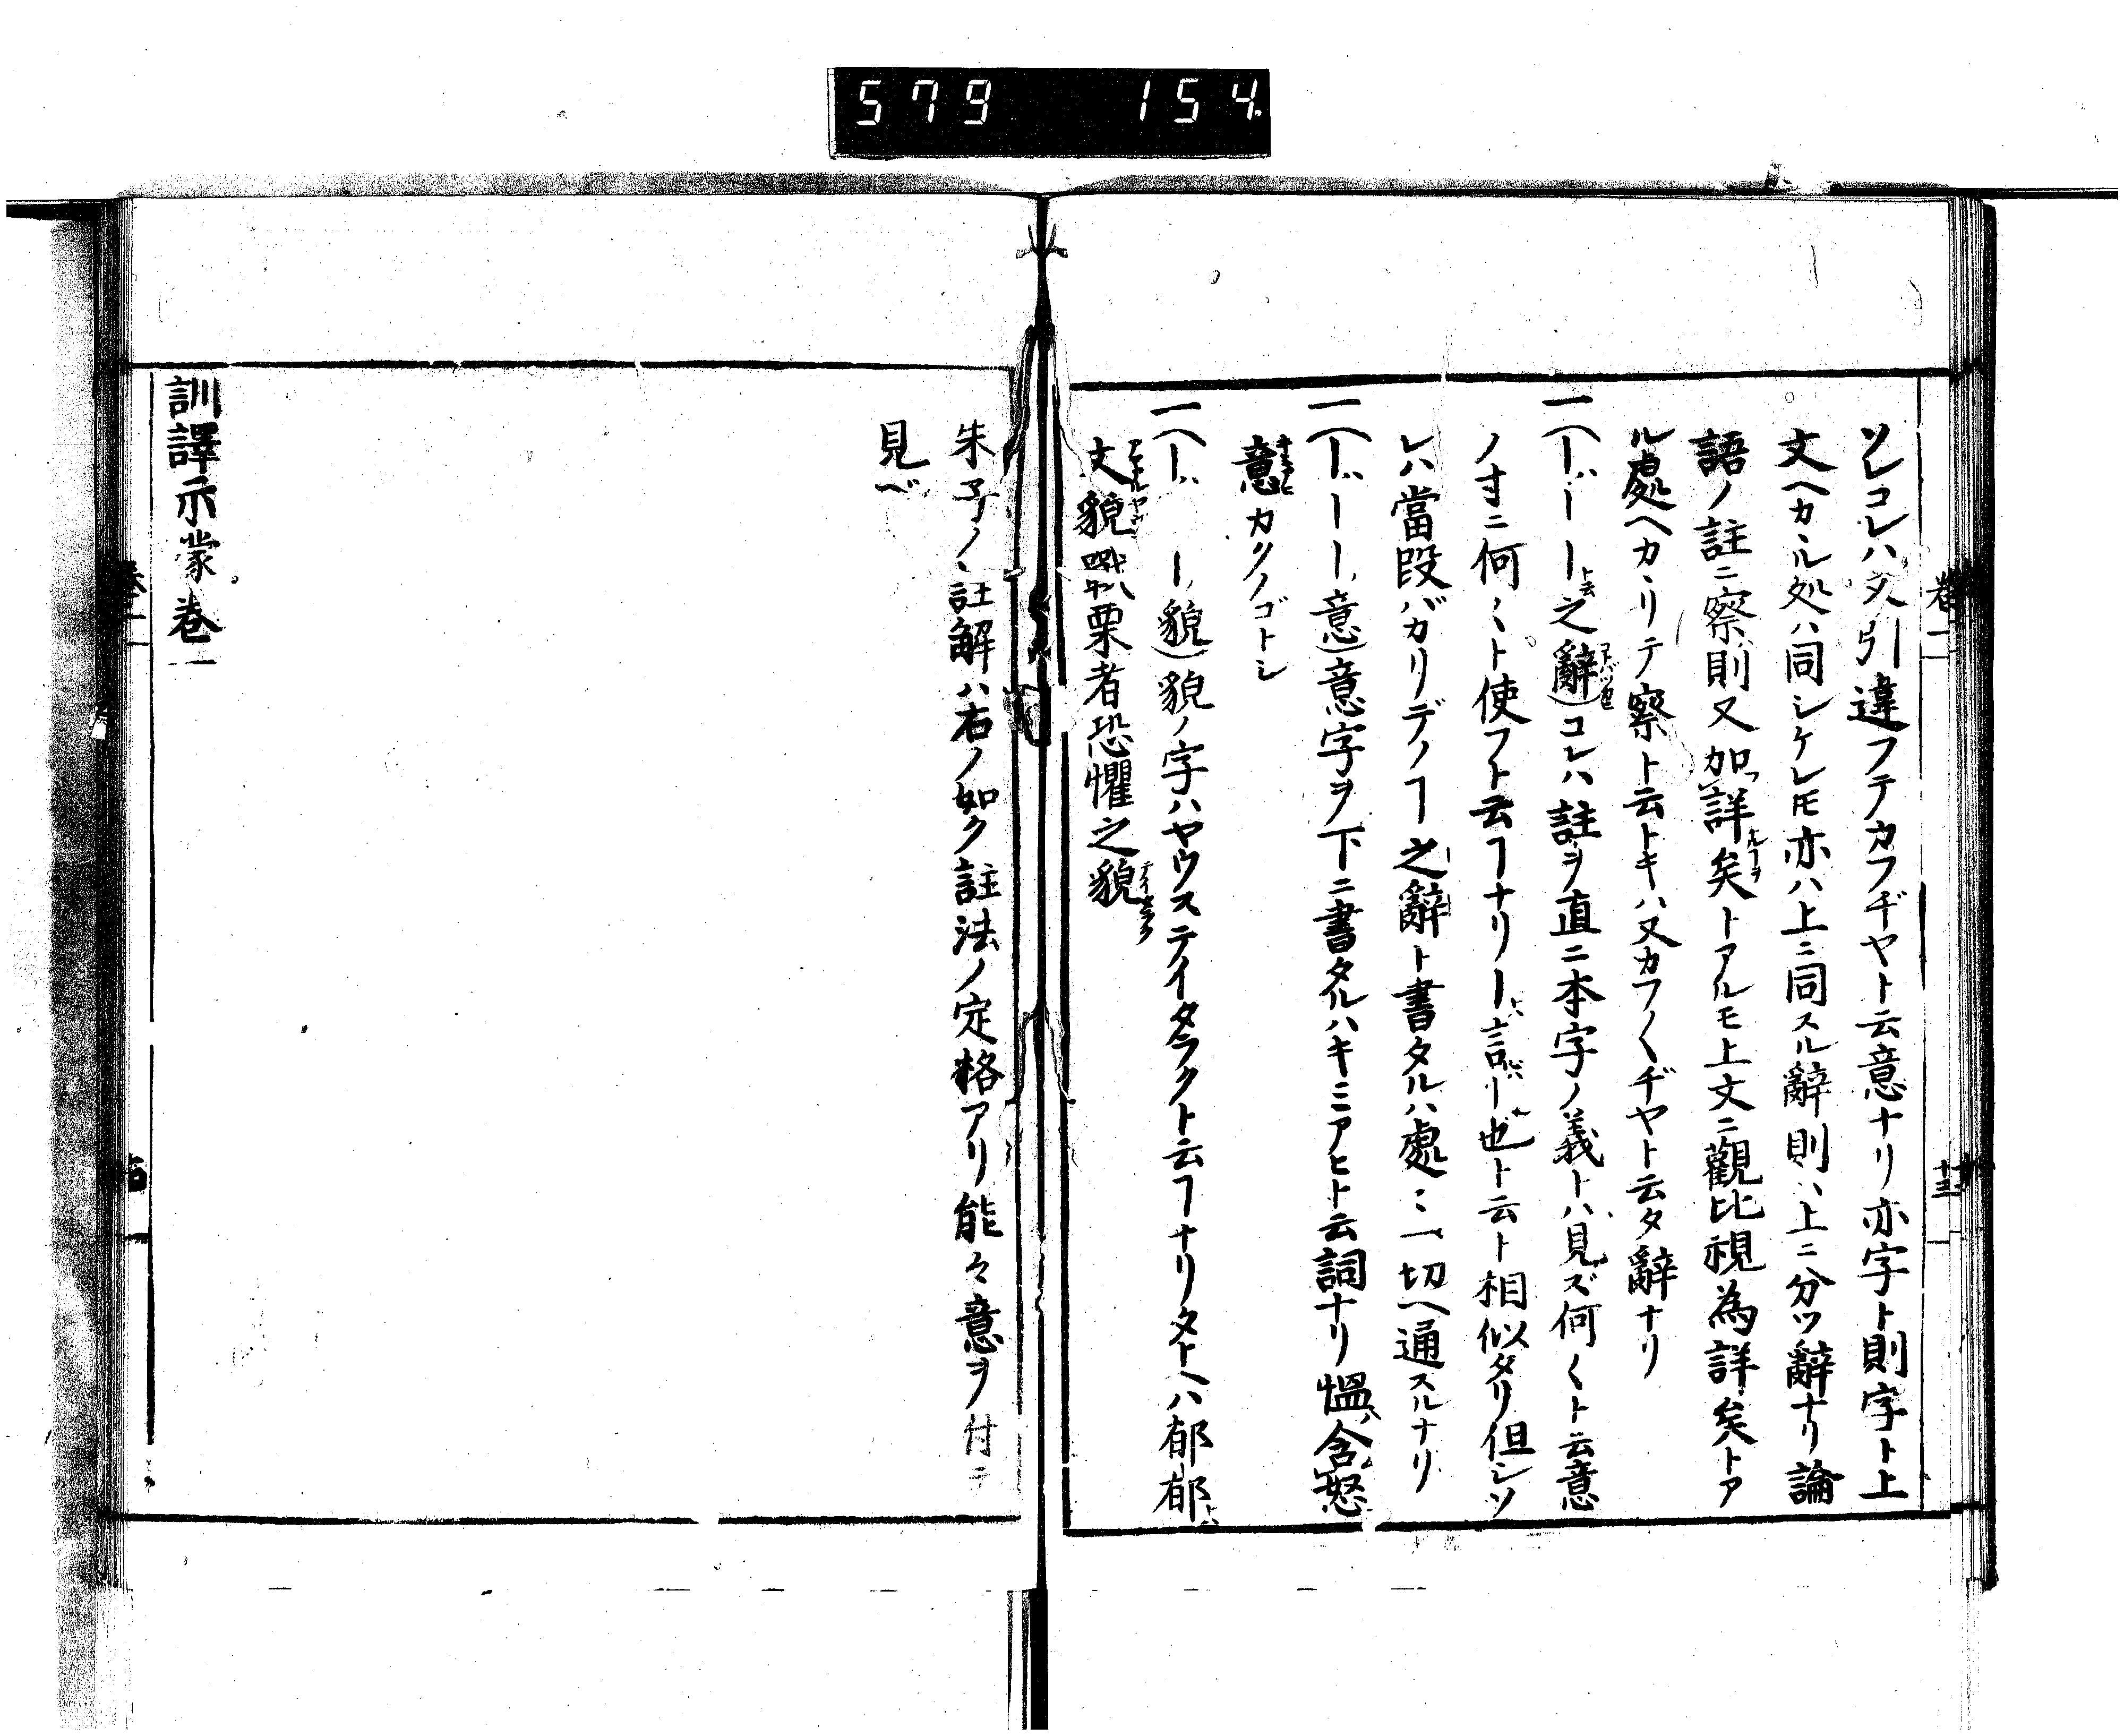 579 154
卷一 十三
ソレコレハ又引違フテカフヂヤト云意ナリ亦字ト則字ト上
文ヘカヽル処ハ同シケレ𪜈亦ハ上ニ同スル辭則ハ上ニ分ツ辭ナリ論
語ノ註ニ察則又加詳矣トアルモ上文ニ觀比視為詳矣トア
ル處ヘカヽリテ察ト云トキハ又カフ〱ヂヤト云タ辭ナリ
一(ーハーー之辭)コレハ註ヲ直ニ本字ノ義トハ見ズ何〱ト云意
ノ寸ニ何〱ト使フト云ヿナリー言ー也ト云ト相似タリ但シソ
レハ當段バカリデノヿ之辭ト書タルハ處ニ一切ヘ通スルナリ
一(ーハーー意)意字ヲ下ニ書タルハキミアヒト云詞ナリ慍含怒
意カクノゴトシ
一(ーハー貌)貌ノ字ハヤウステイタラクト云ヿナリタトヘハ郁郁
文貌戰栗者恐懼之貌
朱子ノ註解ハ右ノ如ク註法ノ定格アリ能々意ヲ付テ
見ベ
訓譯示蒙卷一
卷一